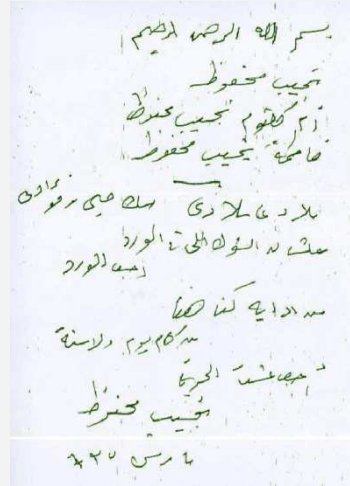 بسم الله الرحمن الرحيم
نجيب محفوظ
أم كلثوم نجيب محفوظ
فاطمة نجيب محفوظ
بلادى بلادى لك حبى وفؤادى
علشان الشوك اللى فى الورد
احب الورد
من اد ايه كنا هنا
من كام يوم ولا سنة
الحرية
نجيب محفوظ
مارس